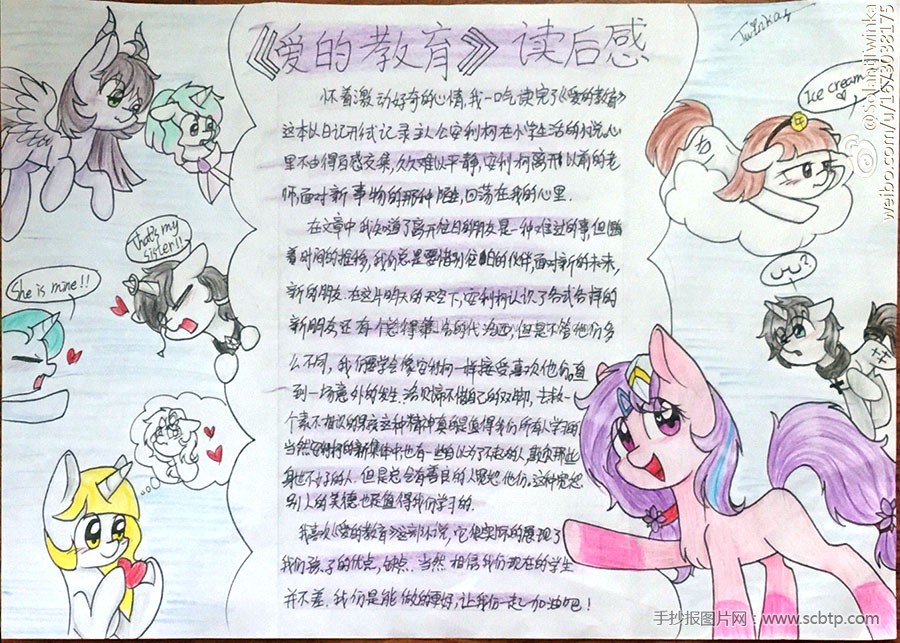 《爱的教育》读后感
怀着激动好奇的心情,我一吃读完了《爱的教育》
这本以日记形式记录主人公安利柯在小学生活的小说,心
里不由得百感交集,久久难以平静,安利柯离开以前的老
师面对新事物的那种 回荡在我的心里.
在文章中我知道了离开往日的朋友是一种难过的事但随
着时间的推移,我们总是要告别 的伙伴,面对新的未来,
新的朋友.在这片明天的天空下,安利柯认识了各式各样的
新朋友还有个总得第一名的代洛西,但是不管他们多
么不同,我们要学会像安利柯一样接受喜欢他们.直
到一场意外的发生,洛贝蒂不惜自己的双脚,去救一
个素不相识的孩子这种精神真的是值得我们所有人学习的
当然安利柯的新集体中也有一些自以为了不起的人,欺负那些
身世不好的人.但是总会有善良的人宽恕他们,这种宽恕
别人的美德也是值得我们学习的.
我喜欢《爱的教育》这部小说,它很实际的展现了
我们孩子的优点,缺点.当然相信我们现在的学生
并不差.我们是能做的更好,让我们一起加油吧!
That's my
sister!!
She is mine!!
Ice cream
Twinka
@SolandTwinka
weibo.com/u/1673038175
手抄报图片网:www.scbtp.com